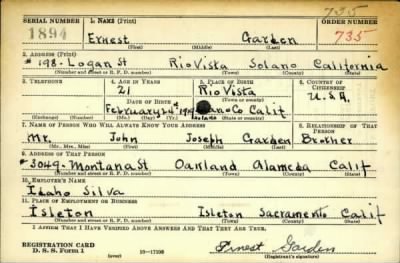 735
SERIAL NUMBER 1. NAME (Print) ORDER NUMBER
1894 Ernest Garden 735
(First) (Middle) (Last)
2. ADDRESS (Print)
#198-Logan St Rio Vista Solano California
(Number and street or R. F. D. number) (Town) (County) (State)
3. TELEPHONE 4. AGE IN YEARS 5. PLACE OF BIRTH 6. COUNTRY OF CITIZENSHIP
21 Rio Vista U.S.A.
DATE OF BIRTH (Town or county)
February Calif
(Exchange) (Number) (Mo.) (Day) (Yr.) (State or country)
7. NAME OF PERSON WHO WILL ALWAYS KNOW YOUR ADDRESS 8. RELATIONSHIP OF THAT PERSON
Mr. John Joseph Garden Brother
(Mr., Mrs., Miss) (First) (Middle) (Last)
9. ADDRESS OF THAT PERSON
#3049-Montana St Oakland Alameda Calif
(Number and street or R. F. D. number) (Town) (County) (State)
10. EMPLOYER'S NAME
Idaho Silva
11. PLACE OF EMPLOYMENT OR BUSINESS
Isleton Isleton Sacramento Calif
(Number and street or R. F. D. number) (Town) (County) (State)
I AFFIRM THAT I HAVE VERIFIED ABOVE ANSWERS AND THAT THEY ARE TRUE.
REGISTRATION CARD
D. S. S. Form 1 16-17105 Ernest Garden
(over) (Registrant's signature)